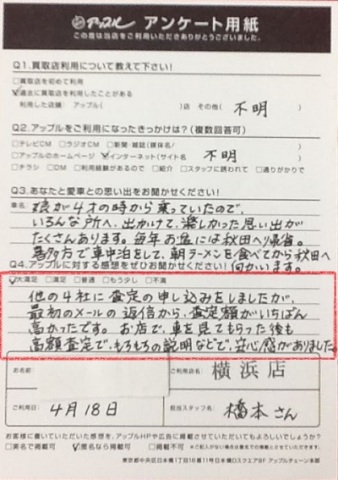 アップル アンケート用紙
この度は当店をご利用いただきありがとうございました。
Q1.買取店利用について教えて下さい!
□買取店を初めて利用
☑過去に買取店を利用したことがある
利用した店舗 アップル( )店 その他( 不明 )
Q2.アップルをご利用になったきっかけは?(複数回答可)
□テレビCM □ラジオCM □新聞・雑誌(媒体名 )
□アップルのホームページ ☑インターネット(サイト名 不明 )
□チラシ □DM □利用経験があるので □紹介 □スタッフに誘われて □通りがかりで
Q3.あなたと愛車との思い出をお聞かせください!
車名
娘が4才の時から乗っていたので、
いろんな所へ、出かけて、楽しかった思い出が
たくさんあります。毎年お盆には秋田へ帰省。
喜多方で車中泊をして、朝ラーメンを食べてから秋田へ
向かいます。
Q4.アップルに対する感想をぜひお聞かせください!
☑大満足 □満足 □普通 □もう少し □不満
他の4社に査定の申し込みをしましたが、
最初のメールの返信から、査定額がいちばん
高かったです。お店で、車を見てもらった後も
高額査定で、もろもろの説明などで、安心感がありました。
お名前
ご利用店名 横浜店
ご利用日 4月18日
担当スタッフ名 橋本さん
お客様に書いていただいた感想を、アップルHPや広告に掲載させていただいてもよろしいでしょうか?
□実名で掲載可 ☑匿名で掲載可 □掲載不可
東京都中央区日本橋1丁目16番11号日本橋Dスクエア9F アップルチェーン本部